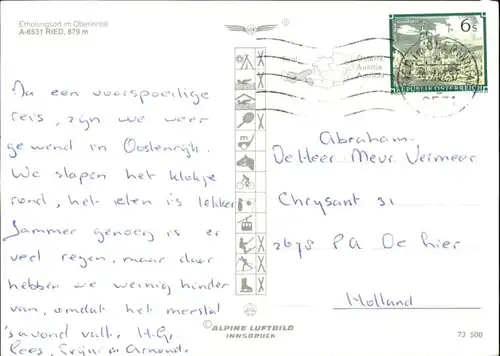 Erholungsort im Oberinntal
A-6531 RIED, 879 m
Na een voorspoedige
reis, zijn we weer
gewend in Oostenrijk.
We slapen het klokje
rond, het eten is lekker
Jammer genoeg is er
veel regen, maar daar
hebben we weinig hinder
van, omdat het meestal
's avond valt. H.G.
Kees, Crijni en Arnoud.
Tirol
Austria
Autriche
6 S
REPUBLIK ÖSTERREICH
Abraham.
De Heer Mevr Vermeer
Chrysant 31
2678 PA De Lier
Holland
© ALPINE LUFTBILD
INNSBRUCK
73 500